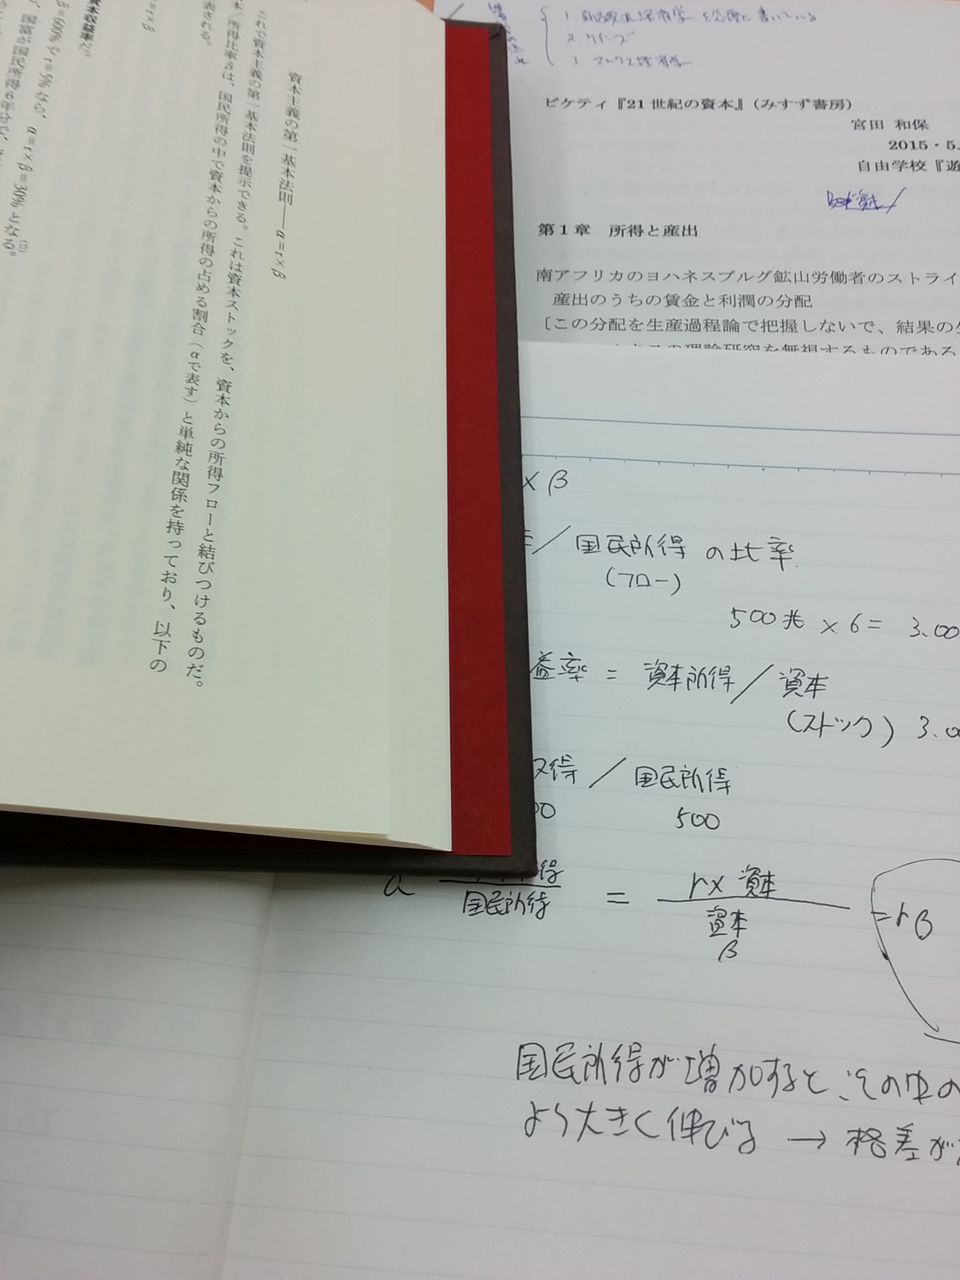 資本主義の第一基本法則——α＝r×β
これで資本主義の第一基本法則を提示できる。これは資本ストックを、資本からの所得フローと結びつけるものだ。
本／所得比率βは、国民所得の中で資本からの所得の占める割合（αで表す）と単純な関係を持っており、以下の
表される。
＝r×β
資本収益率だ。
β＝600％でr＝5％なら、α＝r×β＝30％となる。
国富が国民所得6年分で、
ピケティ『21世紀の資本』（みすず書房）
宮田 和保
2015・5.
自由学校『遊
第1章 所得と産出
南アフリカのヨハネスブルグ鉱山労働者のストライ
産出のうちの賃金と利潤の分配
［この分配を生産過程論で把握しないで、結果の
の理論研究を無視するものである
2. ケインズ
3. マルクス経済学
× β
／国民所得 の比率
(フロー)
500兆 × 6 = 3.00
益率 = 資本所得／資本
(ストック) 3.00
得／国民所得
00 500
α 得
国民所得
= r× 資本
資本
β
= rβ
国民所得が増加すると、その中の
より大きく伸びる → 格差が